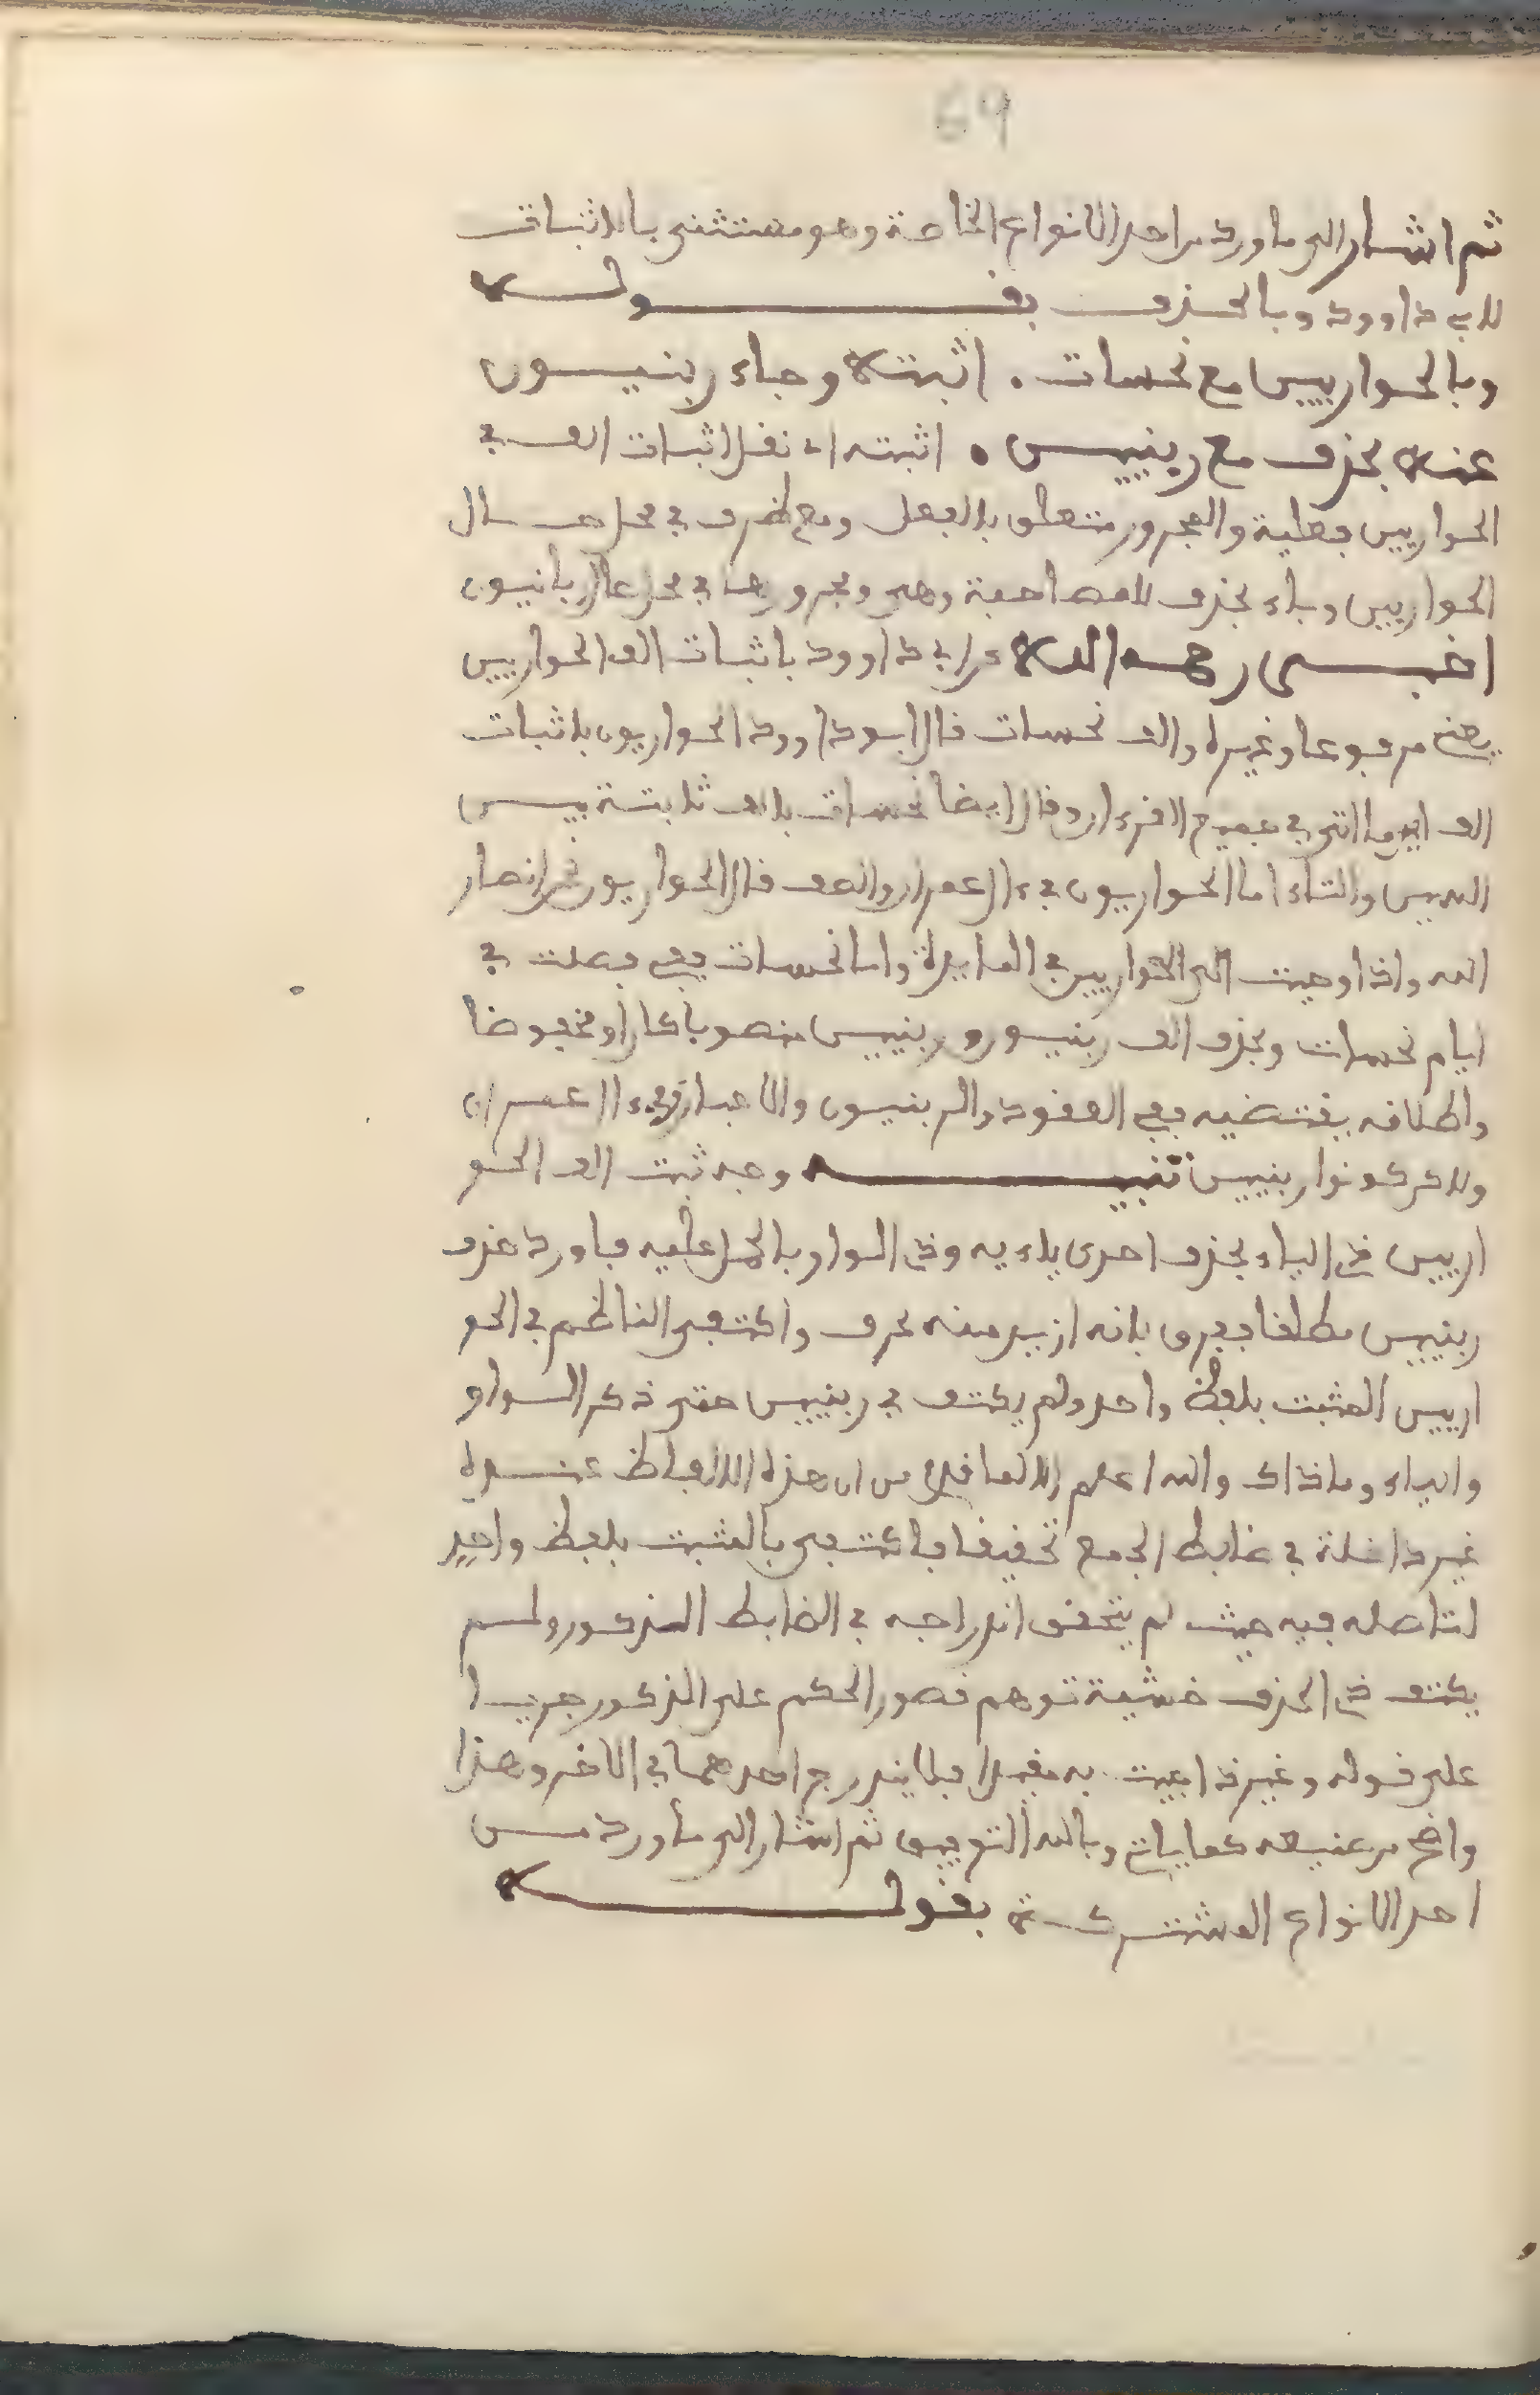 69
ثم اشار الى ما ورد من احد الانواع الخاصة وهو مستثنى بالاثبات
لابي داوود وبالحذف بقوله
وبالحواريين مع نحسات . اثبته وجاء ربنيون
عنه بحذف مع ربنيين . اثبته اي نقل اثبات الف في
الحواريين فعلية والمجرور متعلق بالفعل ومع ظرف في محل حال
الحواريين وباء بحذف للمصاحبة وهي ومجرورها في محل حال ربانيون
اخبر رحمه الله عن ابي داوود باثبات الف الحواريين
يعني مرفوعا وغيره والف نحسات قال ابو داوود الحواريون باثبات
الف اين ما اتى في جميع القرءان وقال ايضا نحسات بالف ثابتة بين
السين والتاء اما الحواريون في ءال عمران والصف قال الحواريون نحن انصار
الله واذ اوحيت الى الحواريين في المايدة واما نحسات ففي فصلت في
ايام نحسات وبحذف الف ربنيون وربنيين منصوبا كان او مخفوضا
واطلاقه يقتضيه ففي العقود والربنيون والاحبار وفي ءال عمران
ولاكن كونوا ربنيين تنبيه وجه ثبت الف الحو
اريين في الياء بحذف احدى ياءيه وفي الواو بالحمل عليه فاورد حذف
ربنيين مطلقا ففرق بانه ازيد منه بحرف واكتفى الناظم في الحو
اريين المثبت بلفظ واحد ولم يكتف في ربنيين حتى ذكر الواو
والياء وما ذاك والله اعلم الا لما من ان هذه الالفاظ عنده
غير داخلة في ضابط الجمع تحقيقا فاكتفى بالمثبت بلفظ واحد
لتاصله فيه حيث لم يتحقق اندراجه في الضابط المذكور ولم
يكتف في الحذف خشية توهم قصور الحكم على المذكور جريا
على قوله وغير ذا جيت به مقيدا فلا يندرج احدهما في الاخر وهذا
واضح من صنيعه كما ياتي وبالله التوفيق ثم اشار الى ما ورد من
احد الانواع المشتركة بقوله